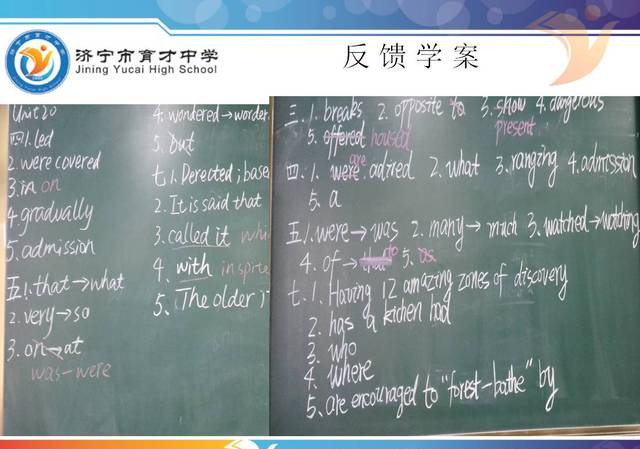 济宁市育才中学
Jining Yucai High School
反馈学案
Unit 20
四1.led
2.were covered
3.in on
4.gradually
5.admission
五1.that→what
2.very→so
3.on→at
was-were
4.wondered→wonder
5.but
七1.Derected;base
2.It is said that
3.called it whi
4.with inspire
5.The older i
三.1.breaks 2.opposite to 3.show 4.dangerous
present
5.offered housed
are
四.1.were adired 2.what 3.ranging 4.admission
5.a
五1.were→was 2.many→much 3.watched→watching
4.of→that to 5.as
七.1.Having 12 amazing zones of discovery
2.has a kichen had
3.who
4.where
5.are encouraged to "forest-bathe" by